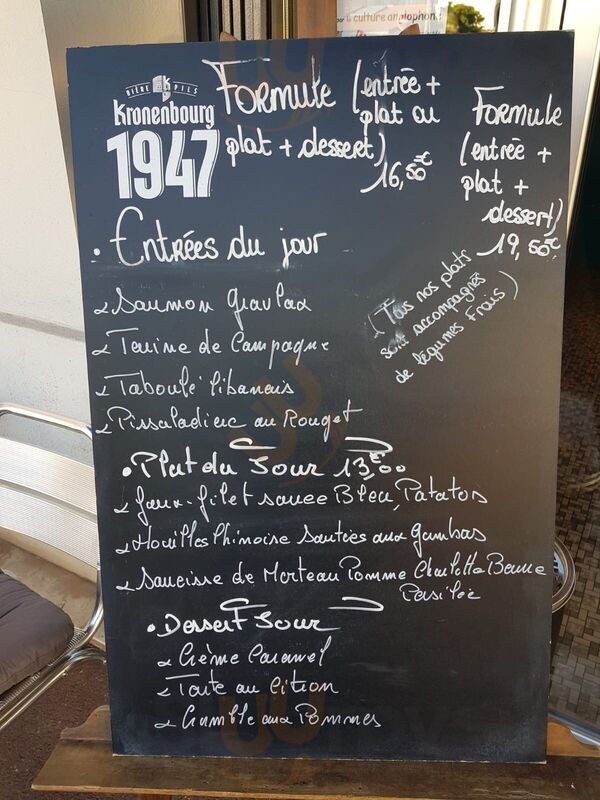 par la culture anglophone
BIÈRE K PILS
Kronenbourg
1947
Formule (entrée +
plat ou
plat + dessert)
16,50€
Formule
(entrée +
plat +
dessert)
19,50€
• Entrées du jour
(Tous nos plats
sont accompagnés
de légumes frais)
Saumon Gravlax
Terrine de Campagne
Taboulé libanais
Pissaladière au Rouget
• Plat du Jour 13€00
faux-filet sauce Bleu, Patatos
Nouilles Chinoise Sautées aux Gambas
Saucisse de Morteau Pomme Charlotte Beurre
Persilée
• Dessert Jour
Crème Caramel
Tarte au Citron
Crumble aux Pommes